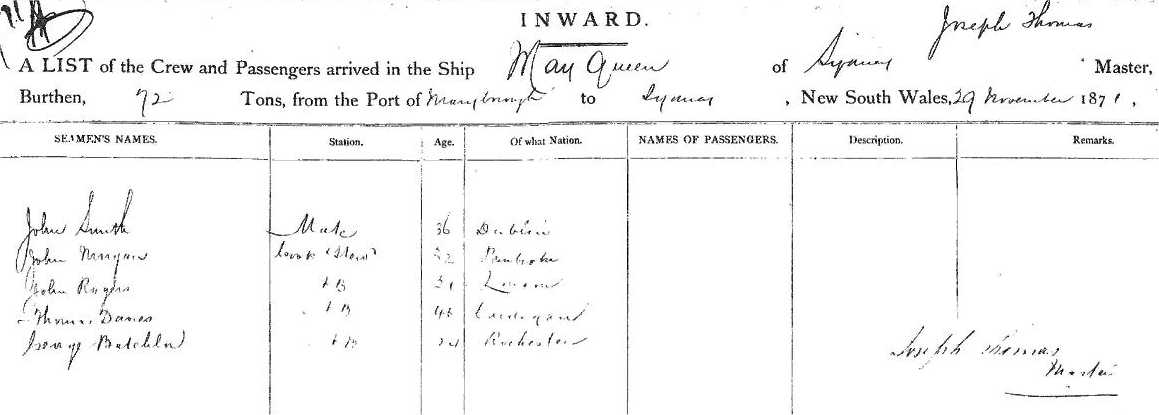 INWARD.
Joseph Thomas
A LIST of the Crew and Passengers arrived in the Ship May Queen of Sydney Master,
Burthen, 72 Tons, from the Port of Maryborough to Sydney, New South Wales, 29 November 1871,
SEAMEN'S NAMES. Station. Age. Of what Nation. NAMES OF PASSENGERS. Description. Remarks.
John Smith Mate 36 Dublin
John Morgan Cook & Stew 22 Pembroke
John Rogers AB
Thomas Davies AB Cardigan
George Batchelor AB Rochester
Joseph Thomas
Master